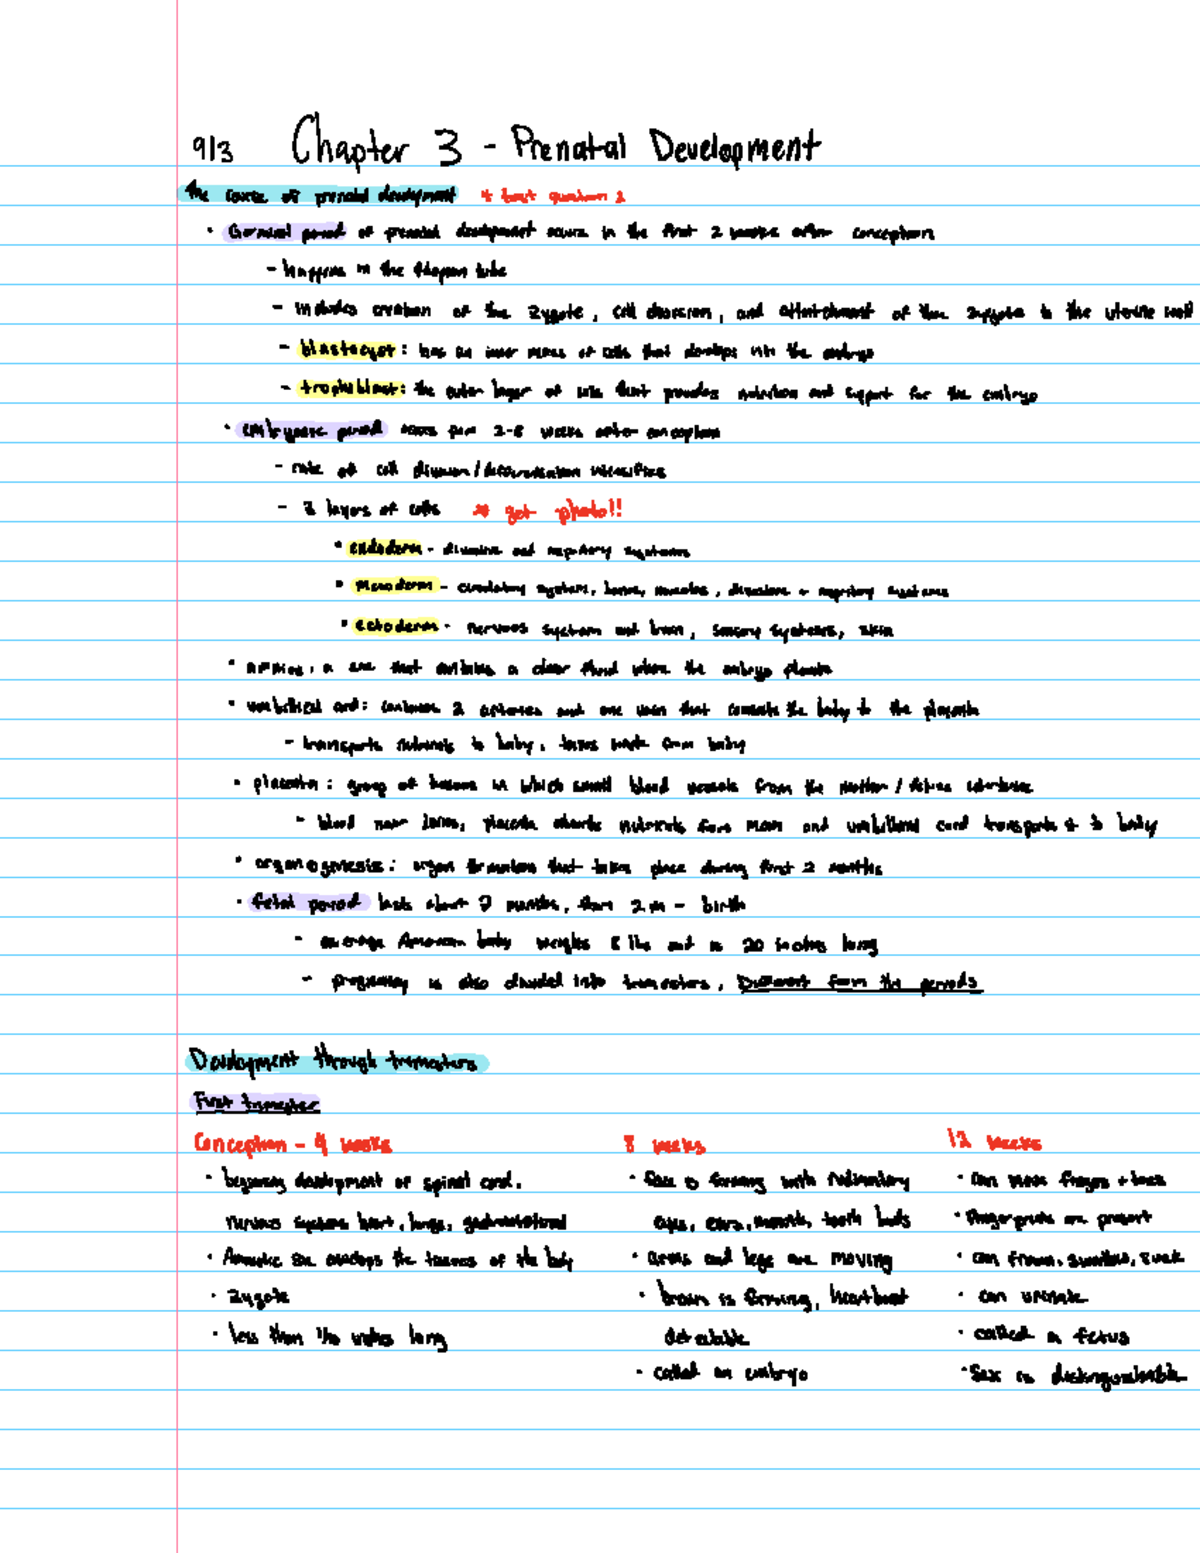 9/3 Chapter 3 - Prenatal Development
The course of prenatal development * test question 2
• Germinal period of prenatal development occurs in the first 2 weeks after conception
- happens in the fallopian tube
- includes creation of the zygote, cell division, and attatchment of the zygote to the uterine wall
- blastocyst: has an inner mass of cells that develops into the embryo
- trophoblast: the outer layer of cells that provides nutrition and support for the embryo
• embryonic period occurs from 2-8 weeks after conception
- rate of cell division/differentiation intensifies
- 3 layers of cells * get photo!!
• endoderm - digestive and respiratory systems
• Mesoderm - circulatory system, bones, muscles, +
• ectoderm - nervous system and brain, sensory systems, skin
• amnion: a sac that contains a clear fluid where the embryo floats
• umbilical cord: contains 2 arteries and one vein that connects the baby to the placenta
- transports nutrients to baby, takes waste from baby
• placenta: group of tissues in which small blood vessels from the mother / fetus intertwine
- blood never joins, placenta nutrients from mom and umbilical cord transports it to baby
• organogenesis: organ formation that takes place during first 2 months
• fetal period lasts about 7 months, from 2m - birth
- average American baby weighs 8 lbs and is 20 inches long
- pregnancy is also divided into trimesters, Different from the periods
Development through trimesters
First trimester
Conception - 4 weeks
• beginning development of spinal cord,
nervous system, heart, lungs, gastrointestinal
• Amniotic sac envelops the tissues of the body
• zygote
• less than 1/10 inches long
8 weeks
• face is forming with rudimentary
eyes, ears, mouth, tooth buds
• arms and legs are moving
• brain is forming, heartbeat
detectable
• called an embryo
12 weeks
• can move fingers + toes
• Fingerprints are present
• can frown, swallow, suck
• can urinate
• called a fetus
• Sex is distinguishable